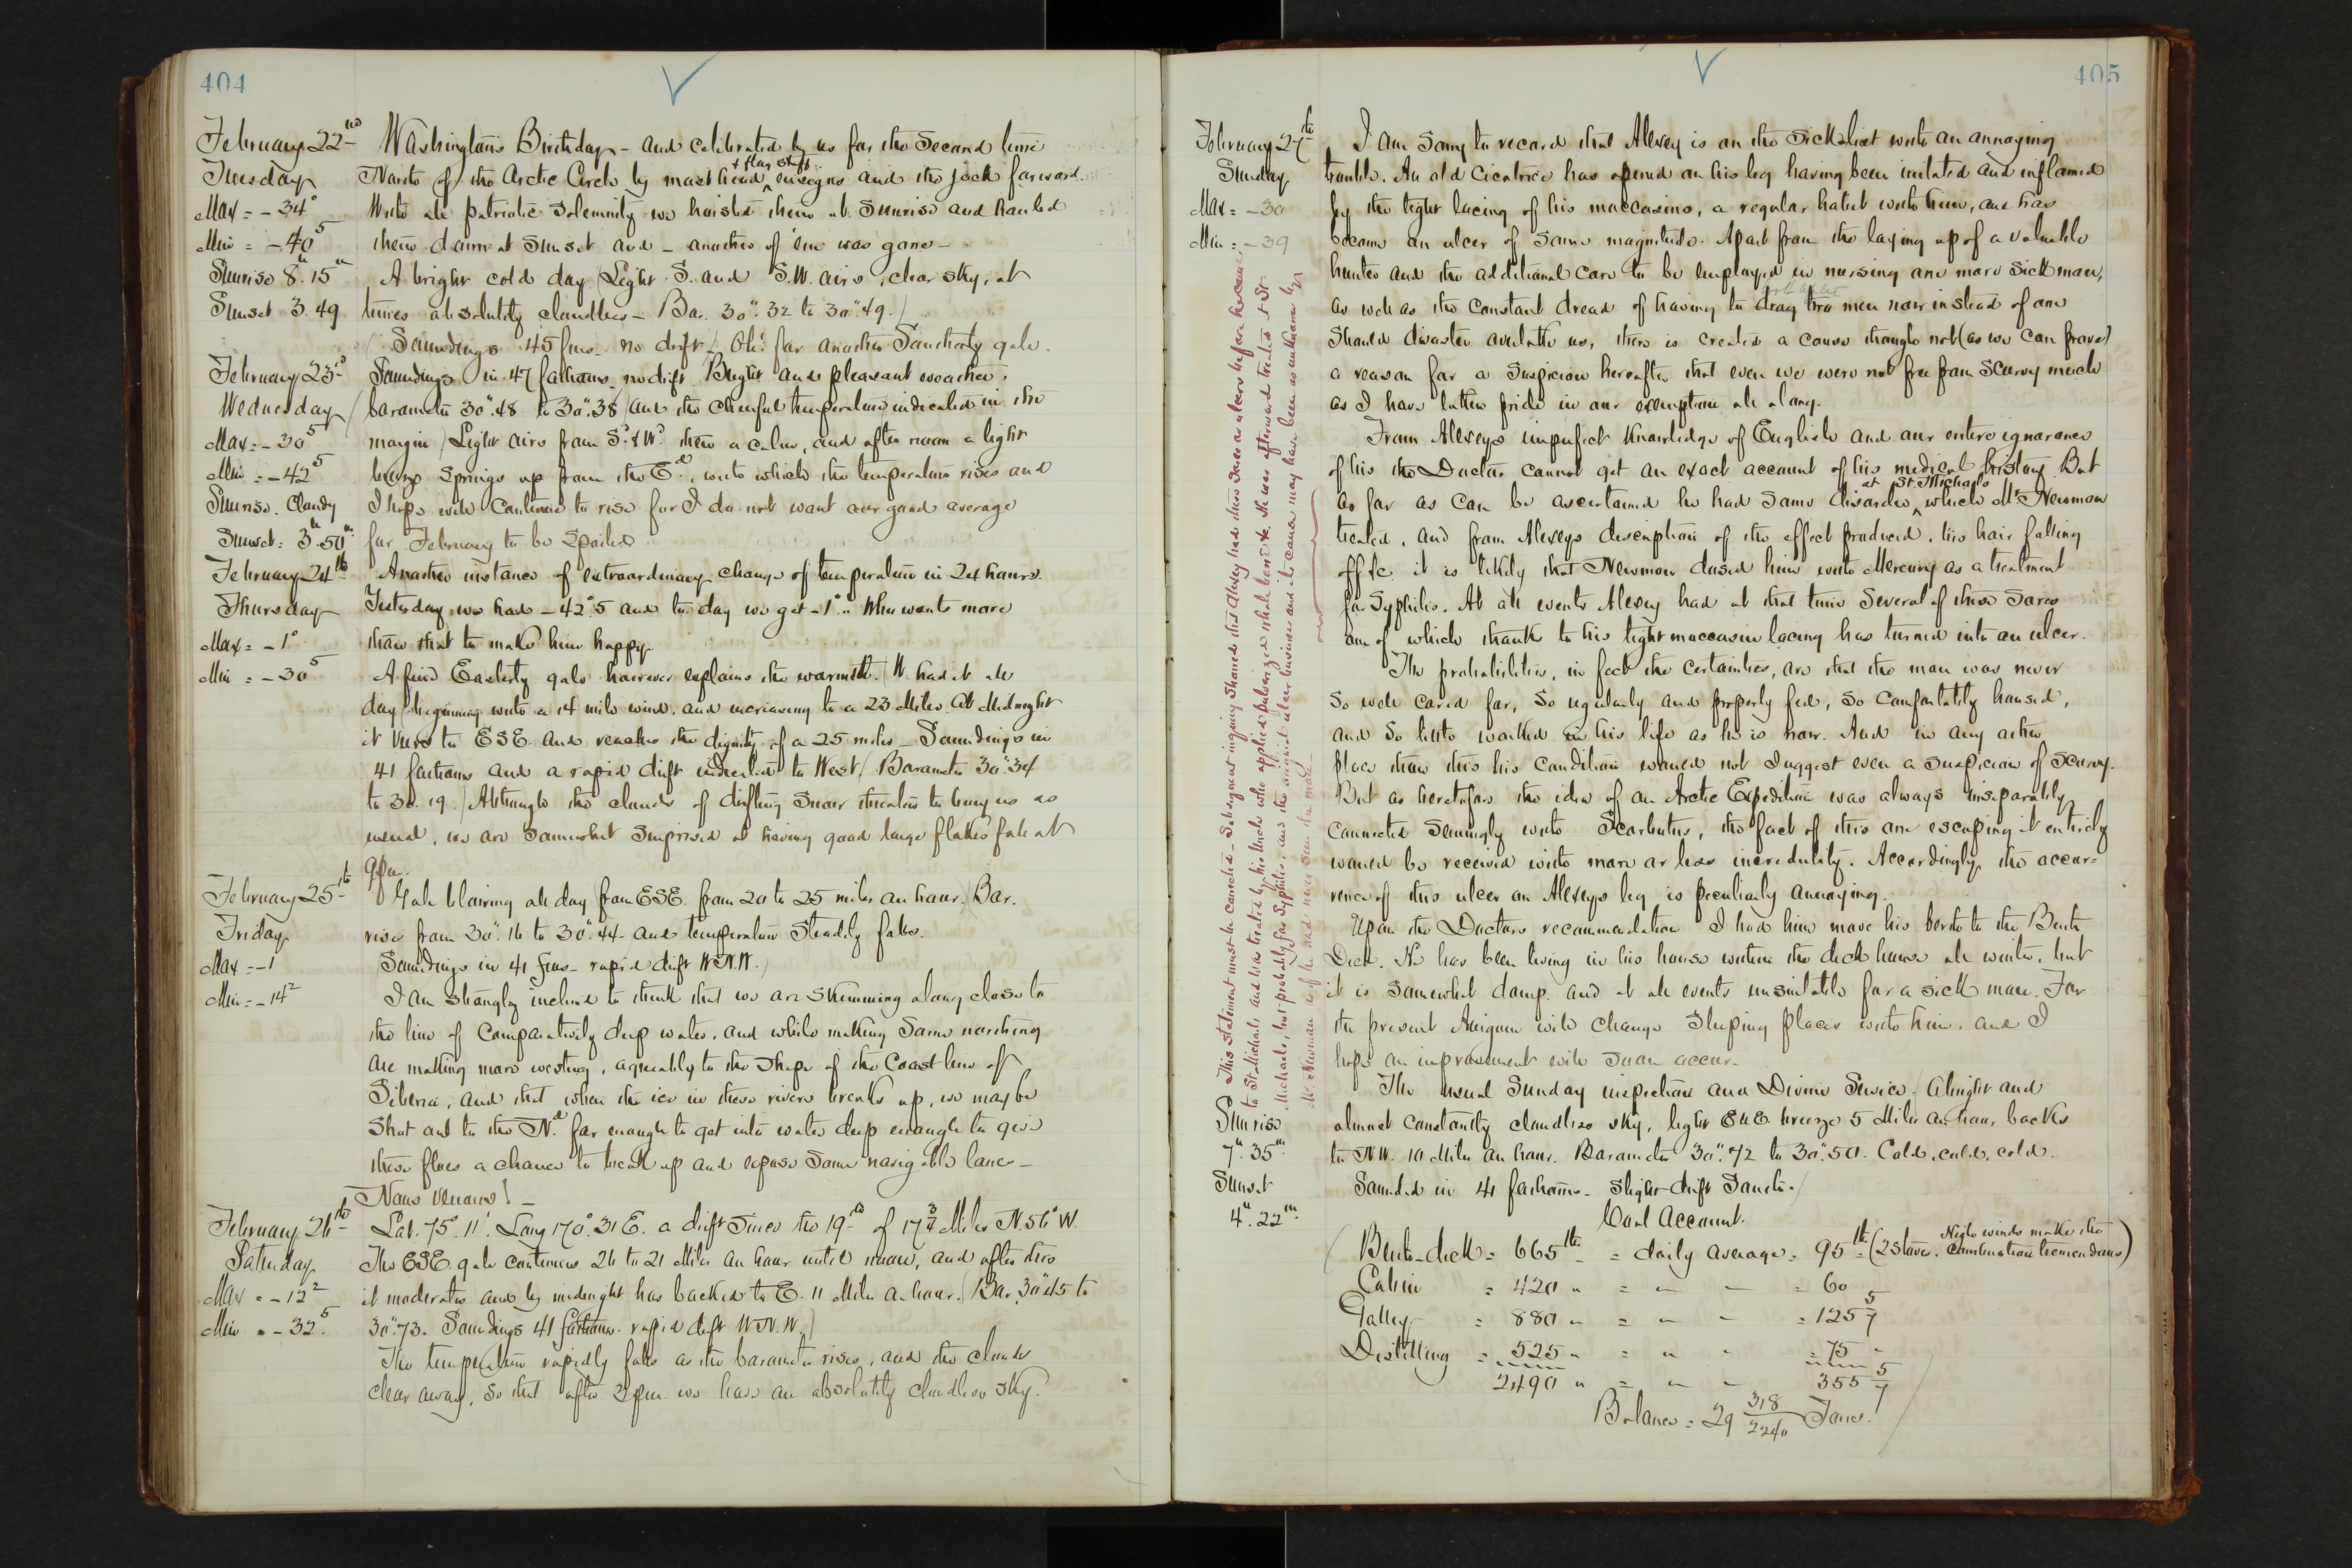 404
February 22nd
Tuesday
Max = -34°
Min = -40°5
Sunrise 8h 15m
Sunset 3. 49
Washington's Birthday - and celebrated by us for the second time
North of the Arctic Circle by mast head + flag staff ensigns and the jack forward.
With all patriotic solemnity we hoisted them at sunrise and hauled
them down at sunset and - another of 'em was gone -
A bright cold day (Light S. and S.W. airs, clear sky, at
times absolutely cloudless - Bar. 30".32 to 30".49.)
(Soundings 45 fms. no drift) Oh! for another Southerly gale.
February 23d
Wednesday
Max = -30°5
Min = -42°5
Sunrise. Cloudy
Sunset = 3h 50m
Soundings in 47 fathoms, no drift. Bright and pleasant weather,
(barometer 30".48 to 30".38) and the cheerful temperature indicated in the
margin) Light airs from Sd & Wd then a calm, and after noon a light
breeze springs up from the Ed, with which the temperature rises and
I hope will continue to rise for I do not want our good average
for February to be spoiled
February 24th
Thursday
Max = -1°
Min = -30°5
Another instance of extraordinary change of temperature in 24 hours.
Yesterday we had -42°.5 and to day we get -1°. Who wants more
than that to make him happy.
A fine Easterly gale however explains the warmth. (W. had it all
day (beginning with a 14 mile wind, and increasing to a 23 Miles. At Midnight
it veers to ESE. and reaches the dignity of a 25 miles - Soundings in
41 fathoms and a rapid drift indicated to West.) (Barometer 30".34
to 30.19.) Although the clouds of drifting snow threaten to bury us as
usual, we are somewhat surprised at having good large flakes fall at
9 pm.
February 25th
Friday
Max = -1
Min = -14°2
Gale blowing all day from ESE. from 20 to 25 miles an hour. (Bar.
rises from 30".16 to 30".44 - and temperature steadily falls.
Soundings in 41 fms - rapid drift W.N.W.)
I am strongly inclined to think that we are skimming along close to
the line of comparatively deep water, and while making some northing
are making more westing, agreeably to the shape of the Coast line of
Siberia, and that when the ice in these rivers breaks up, we may be
shot out to the Nd. far enough to get into water deep enough to give
these floes a chance to break up and expose some navigable lanes -
Nous verrons! -
February 26th
Saturday
Max = -12°2
Min = -32°5
Lat. 75° 11'. Long 170° 31 E. a drift since the 19th of 17 3/4 Miles N. 56° W.
The ESE. gale continues 26 to 21 Miles an hour until noon, and after this
it moderates and by midnight has backed to E. 11 Miles an hour. (Bar. 30".45 to
30".73. Soundings 41 fathoms. rapid drift W.N.W.)
The temperature rapidly falls as the barometer rises, and the clouds
clear away, so that after 3 pm. we have an absolutely cloudless sky.
405
February 27th
Sunday
Max = -30
Min = -39
I am sorry to record that Alexey is on the sick list with an annoying
trouble. An old cicatrice has opened on his leg having been irritated and inflamed
by the tight lacing of his moccasins, a regular habit with him, and has
become an ulcer of some magnitude. Apart from the laying up of a valuable
hunter and the additional care to be employed in nursing one more sick man,
as well as the constant dread of having to drag two men now instead of one
should disaster overtake us, there is created a cause though not (as we can prove)
a reason for a suspicion hereafter that even we were not free from scurvy much
as I have taken pride in our exemption all along.
From Alexeys imperfect knowledge of English and our entire ignorance
of his the Doctor cannot get an exact account of his medical history. But
as far as can be ascertained he had some disorder at St. Michaels which Mr. Newman
treated, and from Alexeys description of the effect produced, his hair falling
off &c. it is likely that Newman dosed him with Mercury as a treatment
for Syphilis. At all events Alexey had at that time several of these sores
one of which thanks to his tight moccasin lacing has turned into an ulcer.
The probabilities, in fact the certainties, are that the man was never
so well cared for, so regularly and properly fed, so comfortably housed,
and so little worked in his life as he is now. And in any other
place than this his condition would not suggest even a suspicion of scurvy.
But as heretofore the idea of an Arctic Expedition was always inseparably
connected seemingly with Scorbutus, the fact of this one escaping it entirely
would be received with more or less incredulity. Accordingly the occur=
rence of this ulcer on Alexeys leg is peculiarly annoying.
Upon the Doctors recommendation I had him move his berth to the Berth
Deck. He has been living in his house within the deck house all winter, but
it is somewhat damp, and at all events unsuitable for a sick man. For
the present Aniguin will change sleeping places with him, and I
hope an improvement will soon occur.
This statement must be cancelled - Subsequent inquiry showed that Alexey had these sores or ulcers before he came
to St. Michaels and was treated by his Uncle who applied pulverized whale bone &c. He was afterwards treated at St.
Michaels, but probably for Syphilis, and the original ulcer business and its cause may have been unknown by
Mr. Newman as if he had never seen the man -
Sunrise
7h. 35m.
Sunset
4h. 22m.
The usual Sunday inspection and Divine Service. A bright and
almost constantly cloudless sky, light ENE breeze 5 Miles an hour, backs
to N.W. 10 Miles an hour. Barometer 30".72 to 30".50. Cold, cold, cold.
Sounded in 41 fathoms - slight drift South.)
Coal Account.
(Berth-deck = 665 lbs = daily average = 95 lbs (2 Stoves. High winds make the combustion tremendous)
Cabin = 420 " = " " = 60
Galley = 880 " = " " = 125 5/7
Distilling = 525 " = " " = 75 "
2490 " = " " 355 5/7
Balance = 29 318/2240 Tons!)